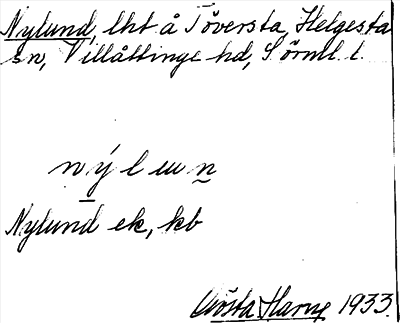 Nylund, lht å Töversta, Helgesta
sn, Villåttinge hd, Sörml. l.
n ý l u n
Nylund ek, kb
Gösta Harne 1933.